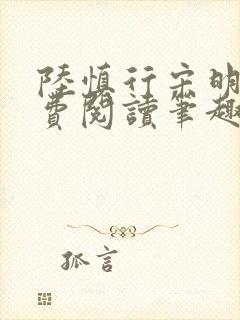 陸慎行宋明
費閱讀筆趣
孤言